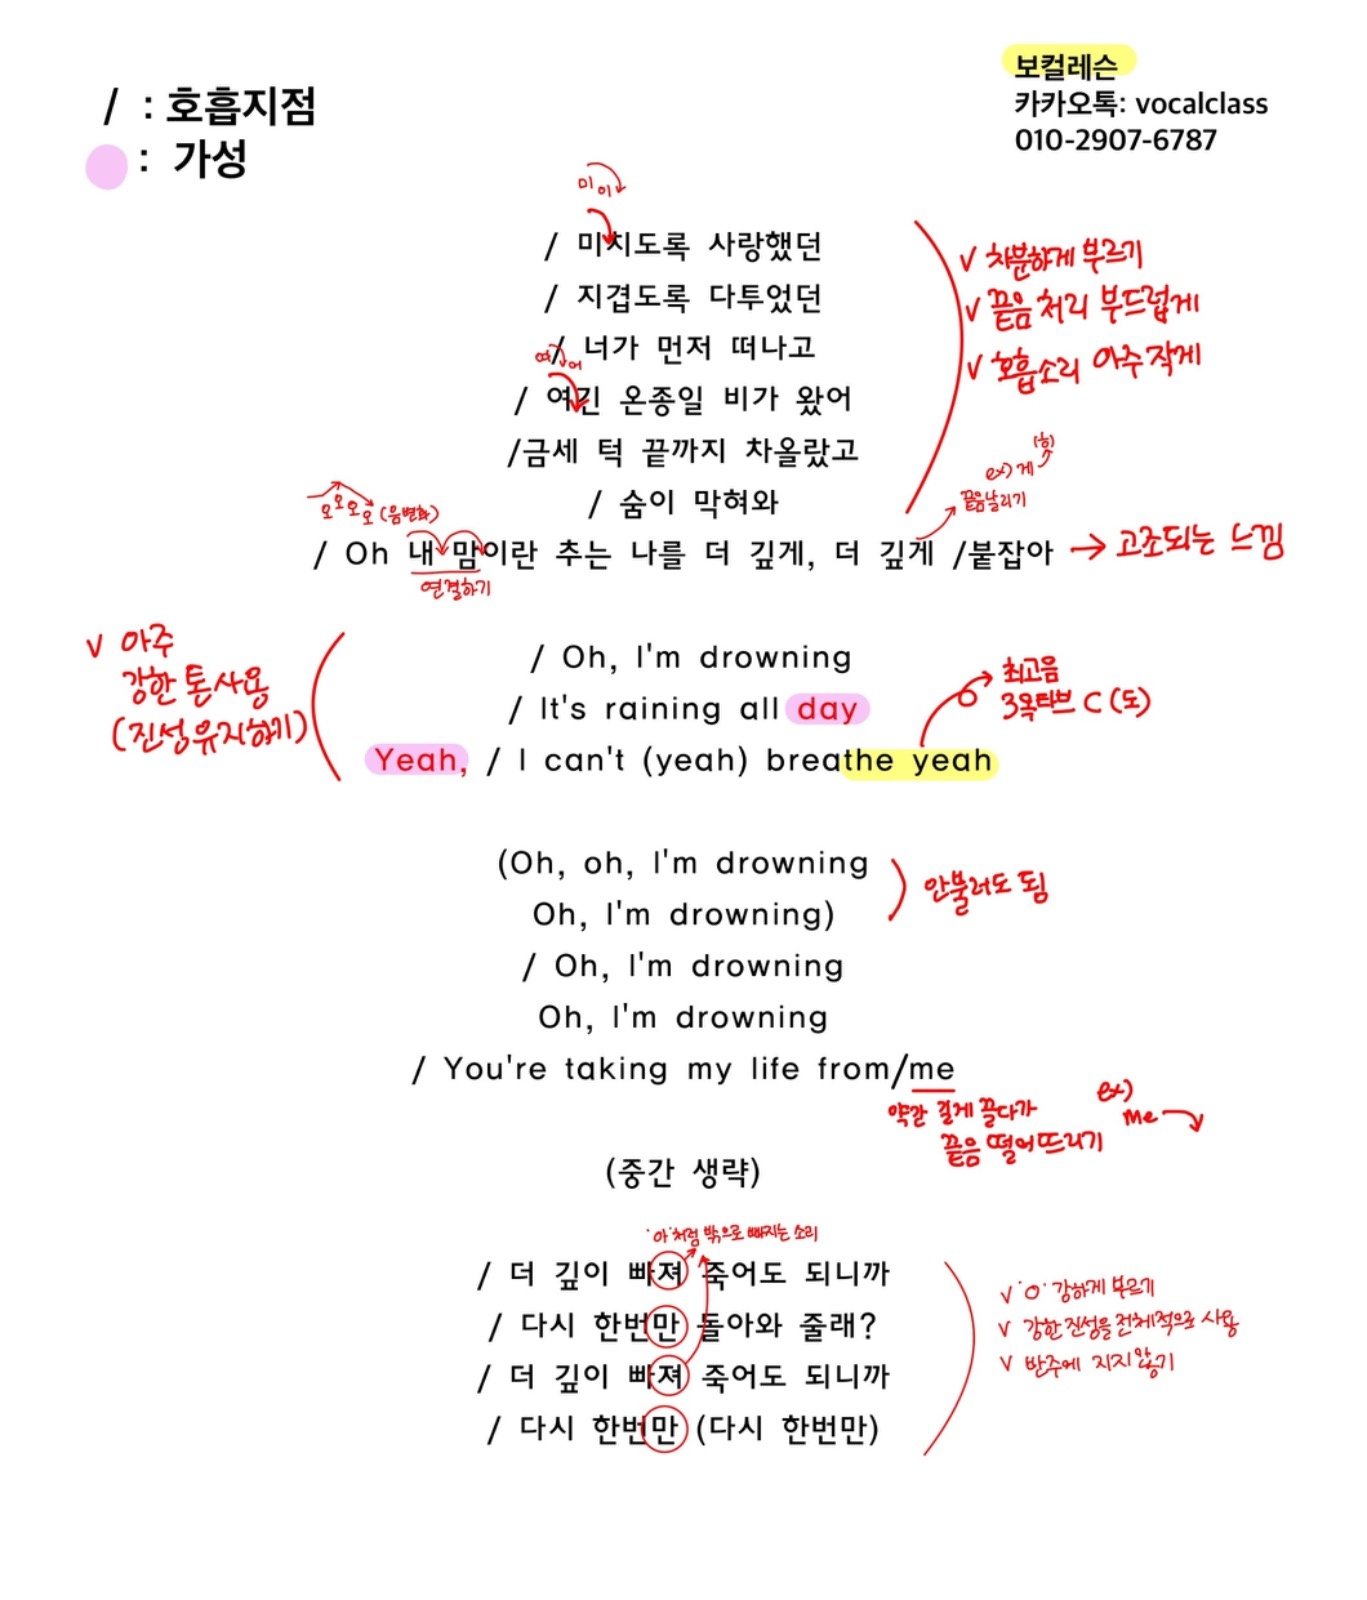 / : 호흡지점
: 가성
보컬레슨
카카오톡: vocalclass
010-2907-6787
미이
/ 미치도록 사랑했던
/ 지겹도록 다투었던
/ 너가 먼저 떠나고
여어
/ 여긴 온종일 비가 왔어
/금세 턱 끝까지 차올랐고
/ 숨이 막혀와
∨ 차분하게 부르기
∨ 끝음 처리 부드럽게
∨ 호흡소리 아주 작게
ex) 게 (흐)
끝음날리기
오오오오 (음변화)
/ Oh 내 맘이란 추는 나를 더 깊게, 더 깊게 /붙잡아 → 고조되는 느낌
연결하기
∨ 아주
강한 톤사용
(진성유지하기)
/ Oh, I'm drowning
/ It's raining all day
Yeah, / I can't (yeah) breathe yeah
최고음
3옥타브 C (도)
(Oh, oh, I'm drowning
Oh, I'm drowning)
안불러도 됨
/ Oh, I'm drowning
Oh, I'm drowning
/ You're taking my life from/me
약간 길게 끌다가
끝음 떨어뜨리기
ex)
me
(중간 생략)
'아'처럼 밖으로 빠지는 소리
/ 더 깊이 빠져 죽어도 되니까
/ 다시 한번만 돌아와 줄래?
/ 더 깊이 빠져 죽어도 되니까
/ 다시 한번만 (다시 한번만)
∨ 'ㅇ' 강하게 부르기
∨ 강한 진성을 전체적으로 사용
∨ 반주에 지지 않기